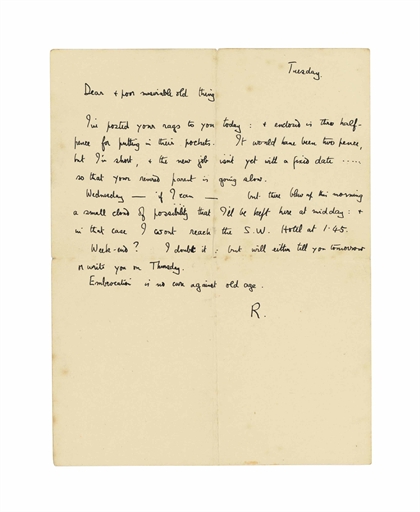 Tuesday.
Dear + poor miserable old thing
I've posted your rags to you today: + enclosed is three half-
pence for putting in their pockets. It would have been two pence,
but I'm short, + the new job isn't yet with a fixed date .....
so that your revered parent is going slow.
Wednesday — if I can — but there blew up this morning
a small cloud of possibility that I'll be kept here at midday: +
in that case I won't reach the S.W. Hotel at 1.45.
Week-end? I doubt it: but will either tell you tomorrow
or write you on Thursday.
Embrocation is no cure against old age.
R.